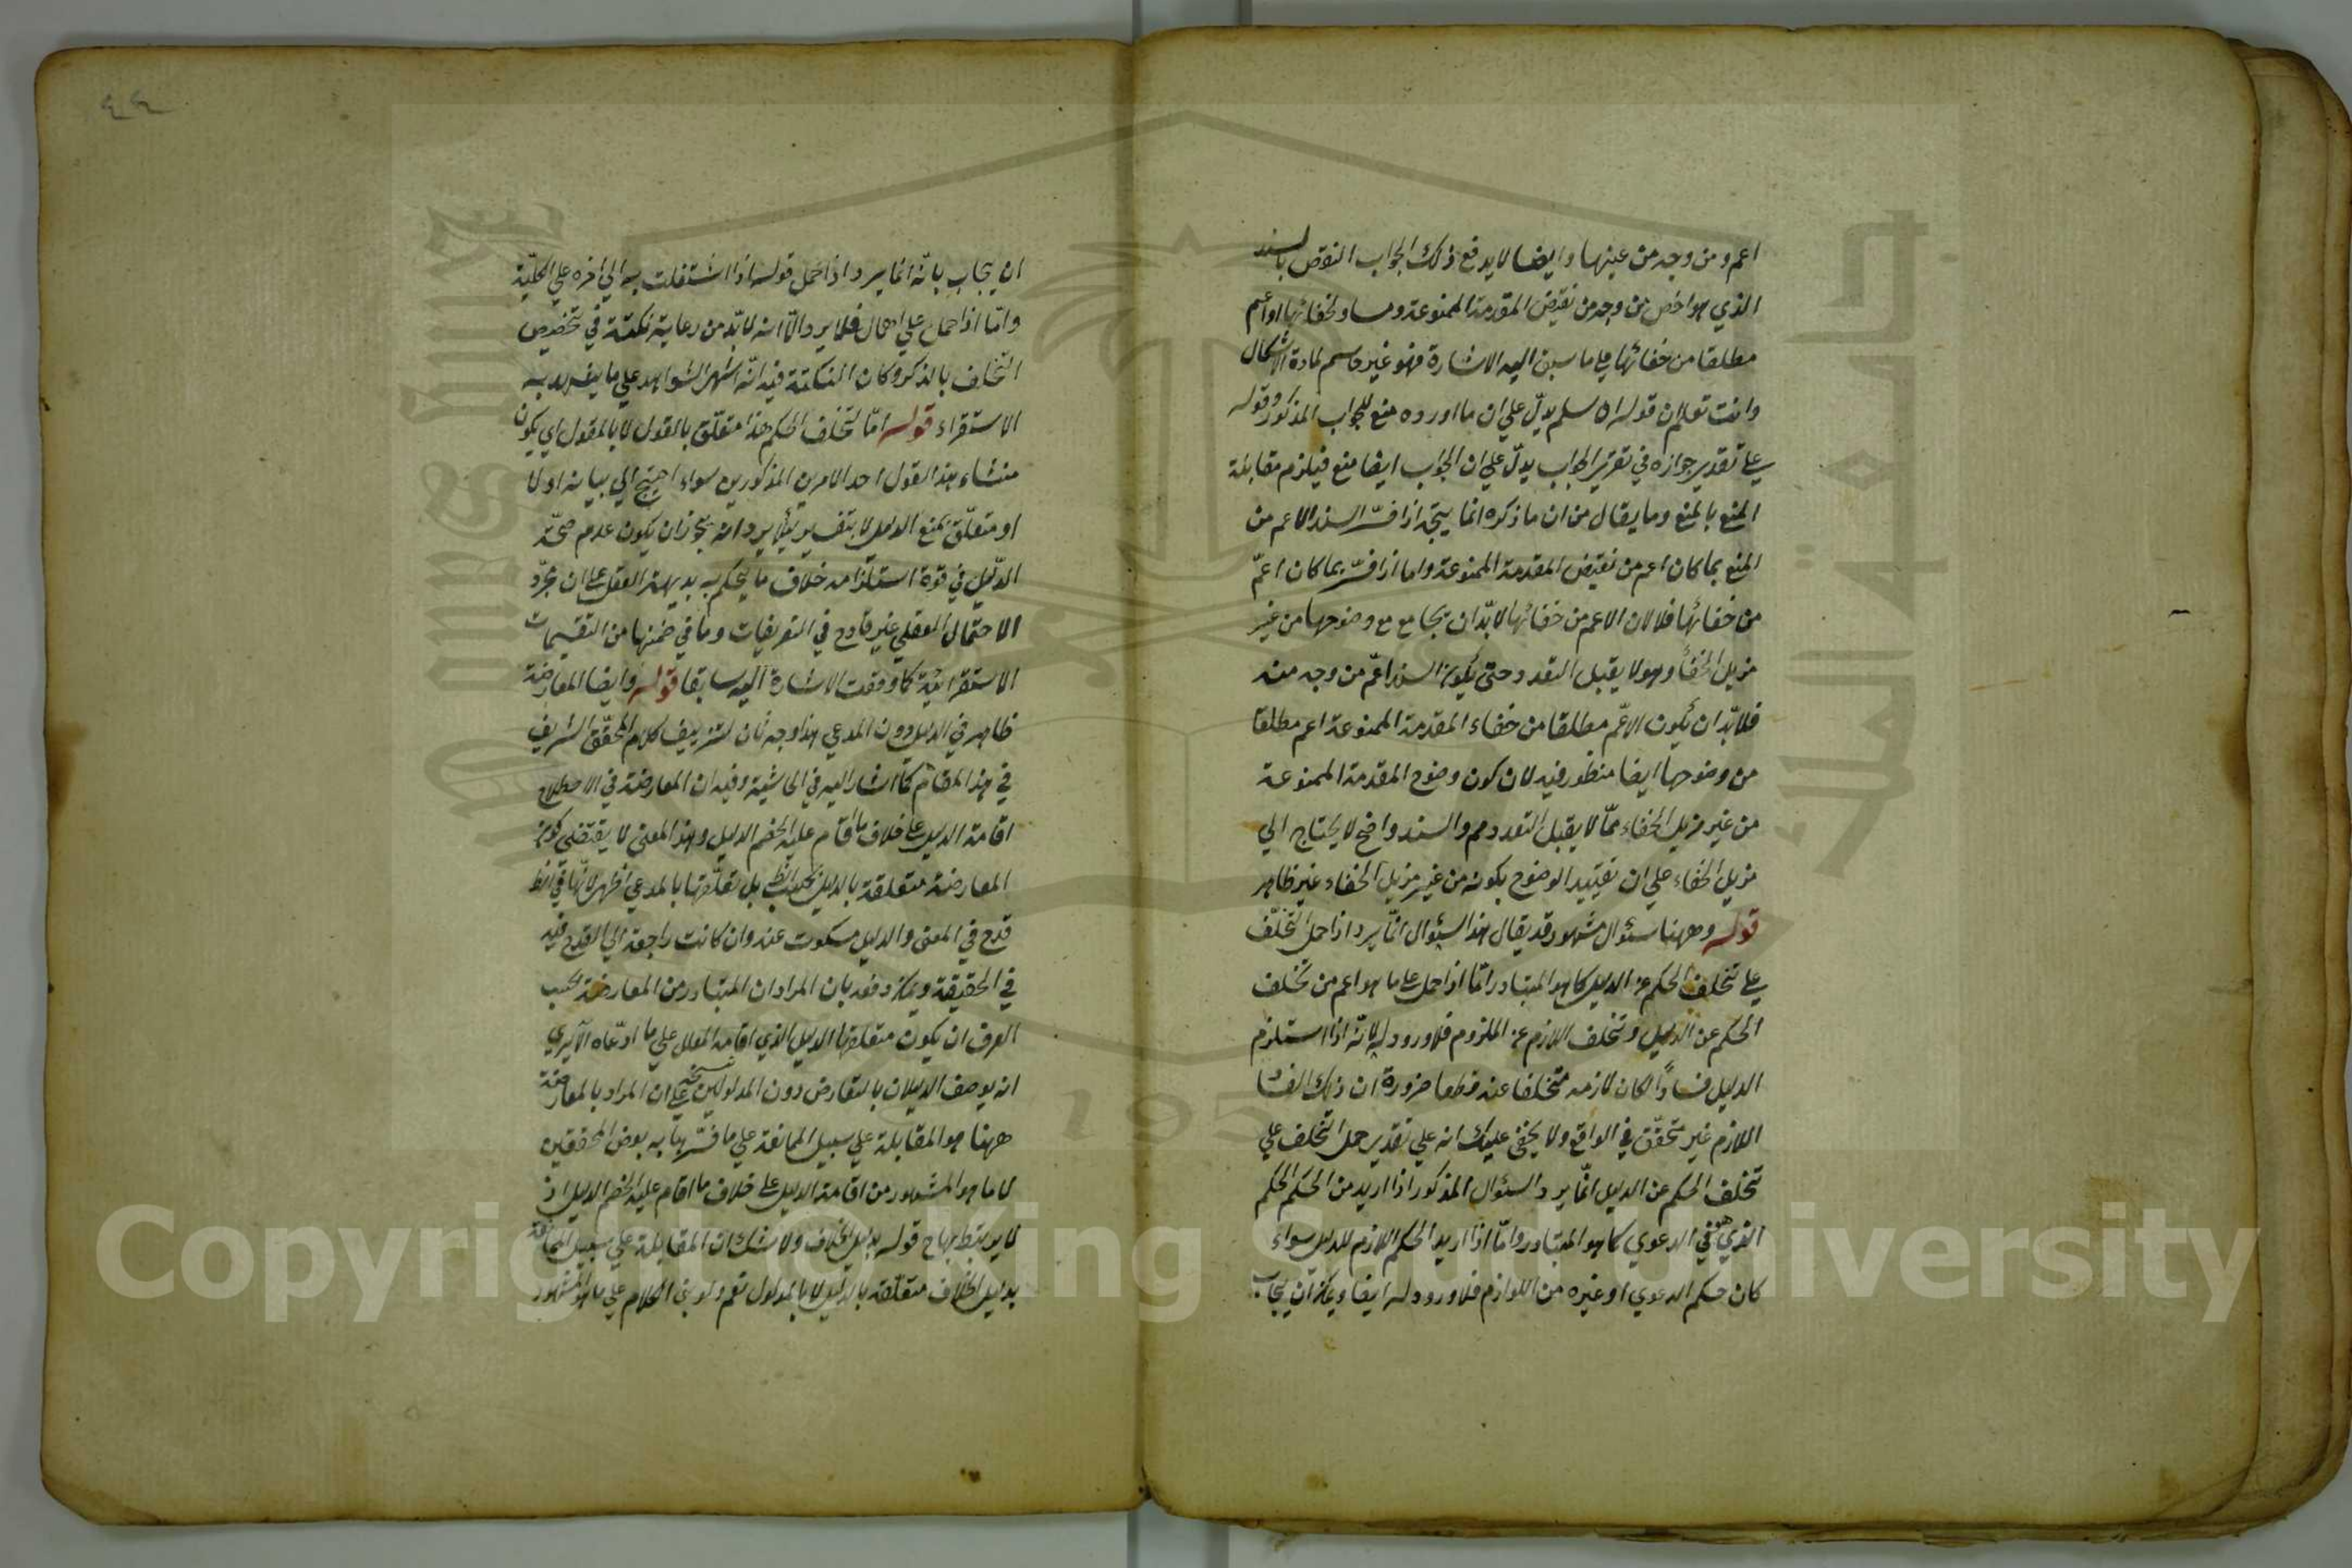 اعم ومن وجه من عينها وايضا لا يدفع ذلك الجواب النقوض بالسند
الذي هو اخص من وجه من نقيض المقدمة الممنوعة ومساو لخفائها او اعم
مطلقا من خفائها علي ما سبق اليه الاشارة فهو غير حاسم لمادة الاشكال
وانت تعلم ان قوله ان سلم يدلّ علي ان ما اورده منع للجواب المذكور وقوله
علي تقدير جوازه في تقرير الجواب يدلّ علي ان الجواب ايضا منع فيلزم مقابلة
المنع بالمنع وما يقال من ان ما ذكره انما يتجه اذا فسّر السند الاعم من
المنع بما كان اعم من نقيض المقدمة الممنوعة واما اذا فسّر بما كان اعمّ
من خفائها فلا لان الاعم من خفائها لا بدّ ان يجامع مع وضوحها من غير
مزيل الخفاء وهو لا يقبل التعدد حتى يكون السند اعمّ من وجه منه
فلا بدّ ان يكون الاعمّ مطلقا من خفاء المقدمة الممنوعة اعم مطلقا
من وضوحها ايضا منظور فيه لان كون وضوح المقدمة الممنوعة
من غير مزيل الخفاء ممّا لا يقبل التعدد مم والسند واضح لا يحتاج الي
مزيل الخفاء علي ان تقييد الوضوح بكونه من غير مزيل الخفاء غير ظاهر
قوله وههنا سئوال مشهور قد يقال هذا السئوال انّما يرد اذا حمل التخلّف
علي تخلف الحكم عن الدليل كما هو المتبادر امّا اذا حمل علي ما هو اعم من تخلف
الحكم عن الدليل وتخلف اللازم عن الملزوم فلا ورود له لانّه اذا استلزم
الدليل فسادًا لكان لازمه متخلفا عنه قطعا ضرورة ان ذلك الفساد
اللازم غير متحقّق في الواقع ولا يخفي عليك انه علي تقدير حمل التخلف علي
تخلف الحكم عن الدليل انّما يرد السئوال المذكور اذا اريد من الحكم الحكم
الذي في الدعوي كما هو المتبادر وامّا اذا اريد الحكم اللازم للدليل سواء
كان حكم الدعوي او غيره من اللوازم فلا ورود له ايضا ويمكن ان يجاب
٤٤
ان يجاب بانّه انما يرد اذا حمل قوله اذا اشتغلت به الي اخره علي الكليّة
وامّا اذا حمل علي اهمال فلا يرد الّا انه لا بدّ من رعاية نكتة في تخصيص
التخلف بالذكر وكان النكتة فيه انّه اشهر الشواهد علي ما يشهد به
الاستقراء قوله امّا لتخلف الحكم هذا متعلّق بالقول لا بالمقول اي يكون
منشاء هذا القول احد الامرين المذكورين سواء احتيج الي بيانه او لا
او متعلّق بمنع الدليل لا بتفسيره لئلا يرد انه يجوز ان يكون عدم صحّة
الدّليل في قوة استلزامه خلاف ما يحكم به بديهة العقل علي ان مجرّد
الاحتمال العقلي غير قادح في التعريفات وما في ضمنها من التقسيمات
الاستقرائيّة كما وقعت الاشارة اليه سابقا قوله وايضا المعارضة
ظاهر في الدليل دون المدعي هذا وجه ثان لتزييف كلام المحقّق الشريف
في هذا المقام كما اشار اليه في الحاشية وفيه ان المعارضة في الاصطلاح
اقامة الدليل علي خلاف ما اقام عليه الخصم الدليل وهذا المعني لا يقتضي كون
المعارضة متعلقة بالدليل بحسب الظ بل تعلّقها بالمدعي اظهر لانّها في الظ
قدح في المعني والدليل مسكوت عنه وان كانت راجعة الي القدح فيه
في الحقيقة ويمكن دفعه بان المراد ان المتبادر من المعارضة بحسب
العرف ان يكون متعلقها الدليل الذي اقامه المعلل علي ما ادّعاه الا يري
انه يوصف الدليلان بالتعارض دون المدلولين علي ان المراد بالمعارضة
ههنا هو المقابلة علي سبيل الممانعة علي ما فسّرها به بعض المحققين
لا ما هو المشهور من اقامة الدليل علي خلاف ما اقام عليه الخصم الدليل اذ
لا يرتبط بها ح قوله بدليل الخلاف ولا شك ان المقابلة علي سبيل الممانعة
بدليل الخلاف متعلّقة بالدليل لا بالمدلول نعم ولو بني الكلام علي ما هو المشهور